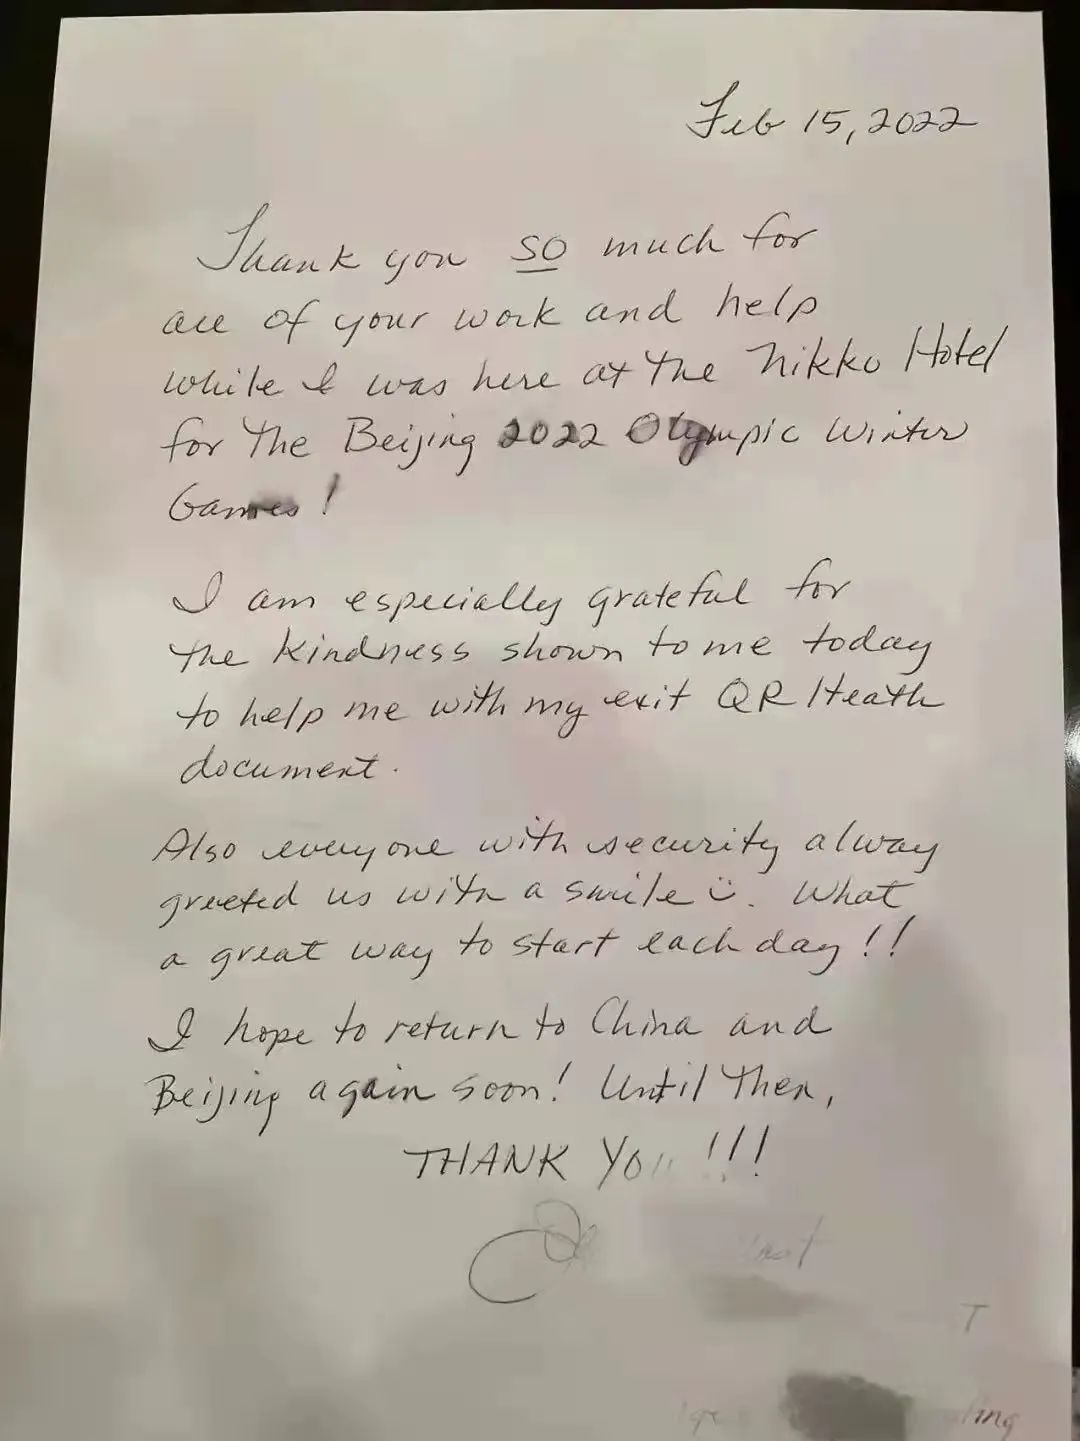 Feb 15, 2022
Thank you SO much for
all of your work and help
while I was here at the Nikko Hotel
for the Beijing 2022 Olympic Winter
Games!
I am especially grateful for
the kindness shown to me today
to help me with my exit QR Heath
document.
Also everyone with security alway
greeted us with a smile ☺. What
a great way to start each day!!
I hope to return to China and
Beijing again soon! Until then,
THANK YOU!!!
T